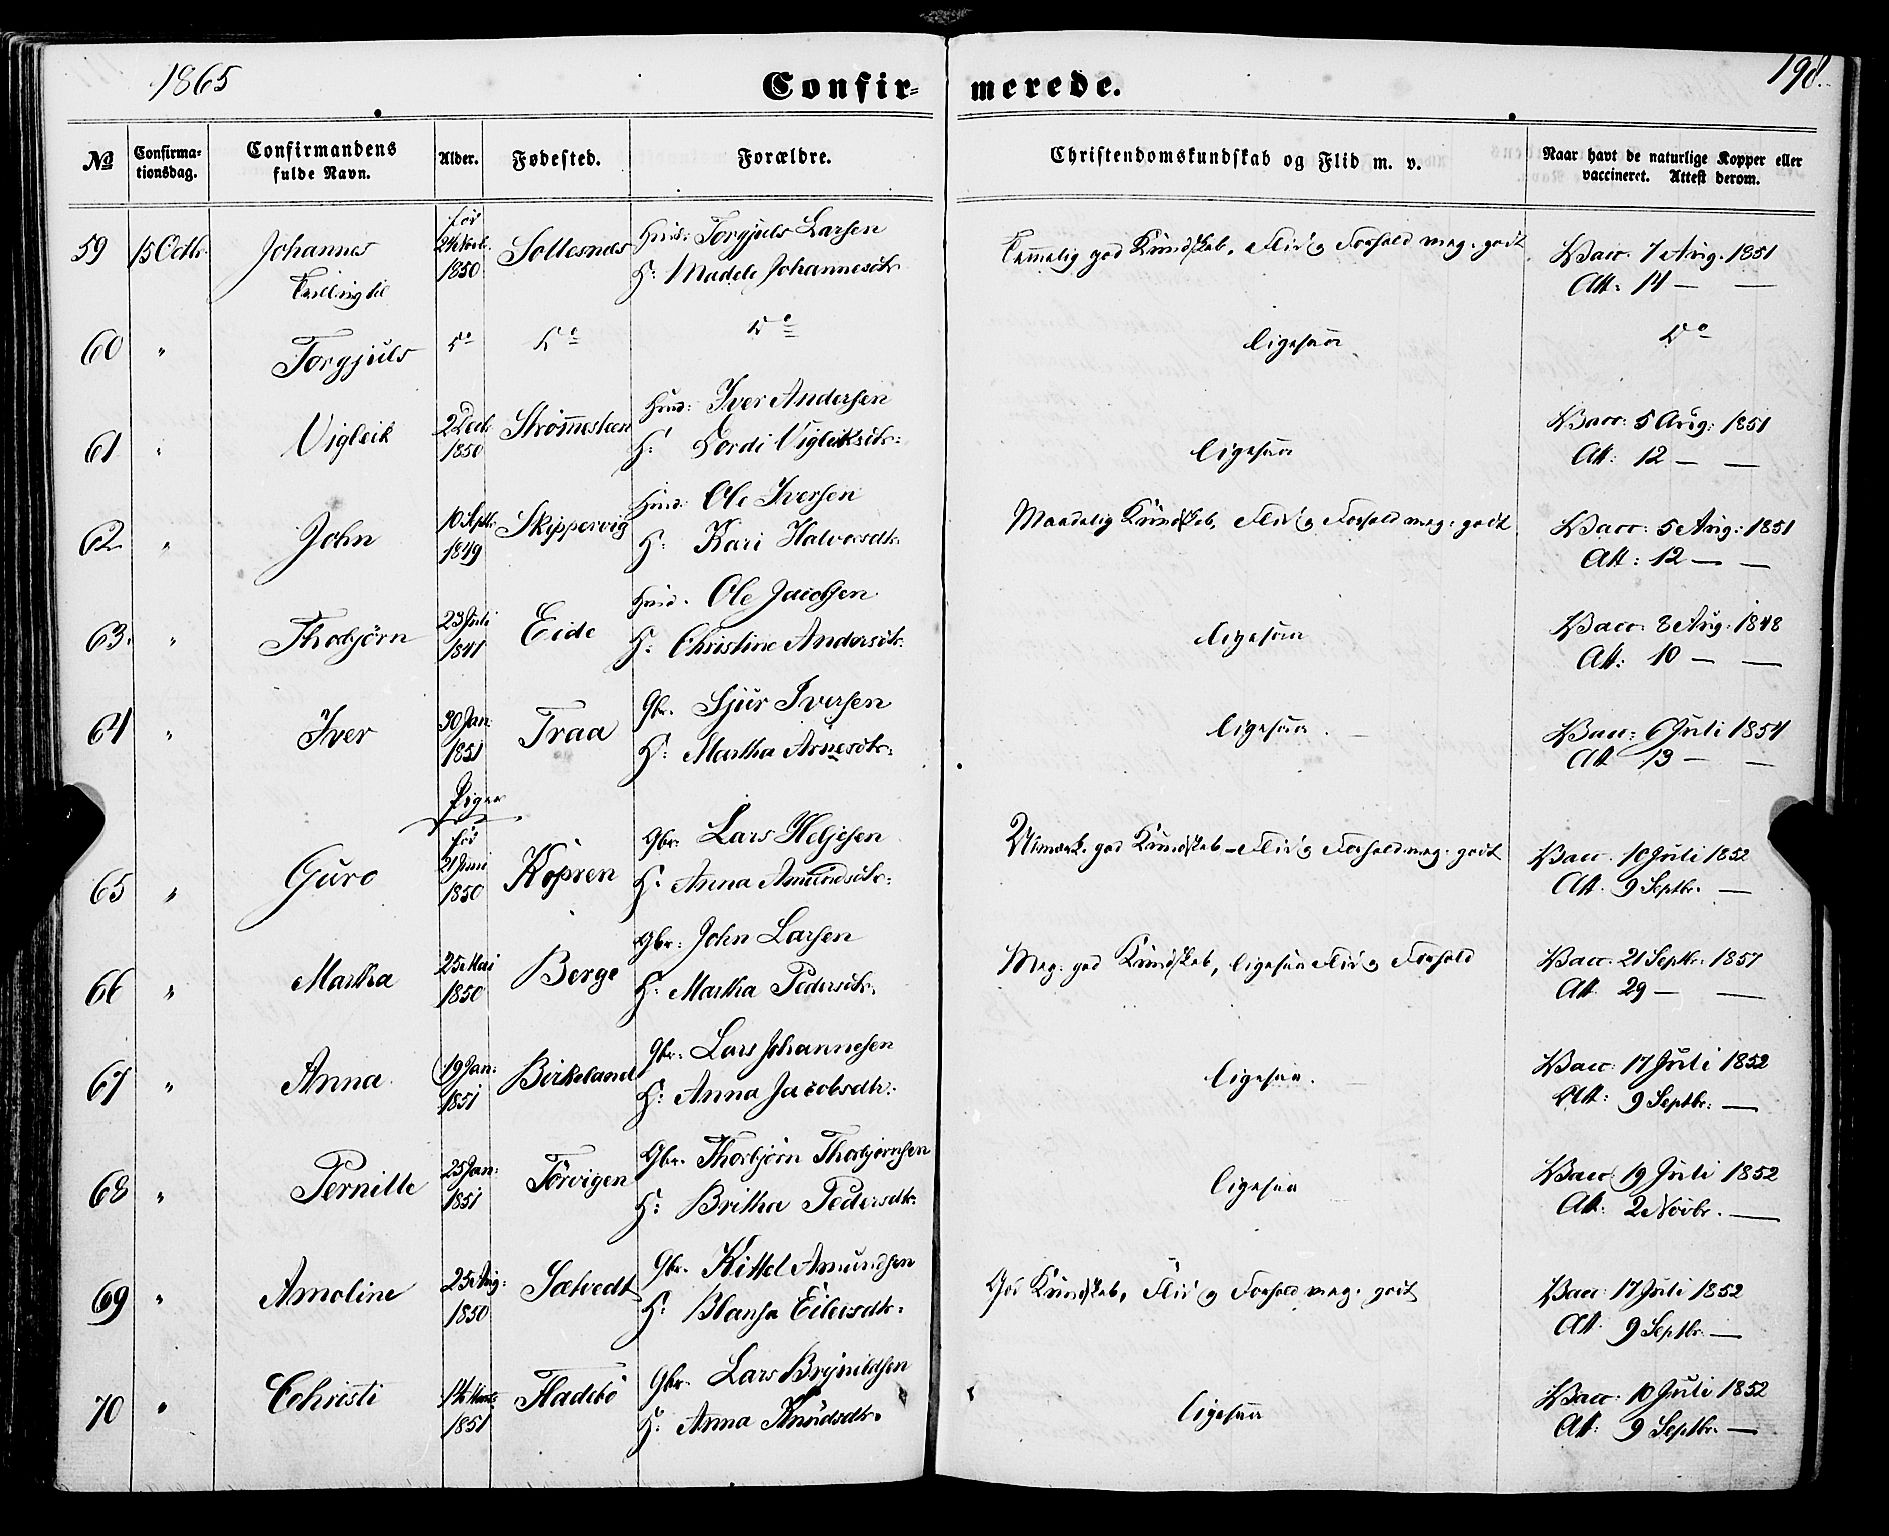 1865 Confirmerede. 198.
No Confirmationsdag. Confirmandens fulde Navn. Alder. Fødested. Forældre. Christendomskundskab og Flid m. v. Naar havt de naturlige Kopper eller vaccineret. Attest derom.
59 15 Octbr. Johannes Tvilling til før 1850 Huusm: Torgjuls Larsen
H: Madele Johannesdtr. Temmelig god Kundskab, Flid og Forhold meg. godt Vacc. 7 Aug. 1851
Att: 14 — —
60 " Torgjuls do do do ligesaa do
61 " Vigleik 2 Decbr. 1850 Strømmesteen Huusm: Iver Andersen
H: Gordi Vigleiksdtr: ligesaa Vacc: 5 Aug: 1851
Att: 12 — —
62 " John 10 Septbr 1849 Skippervig Huusm: Ole Iversen
H: Kari Halvorsdtr. Maadelig Kundskab, Flid og Forhold meg: godt Vacc: 5 Aug: 1851
Att: 12 — —
63. " Thorbjörn 23 Juli 1847 Eide Huusm. Ole Jacobsen
H: Christine Andersdtr. ligesaa Vacc: 8 Aug: 1848
Att: 10 — —
64 " Iver 30 Jan: 1851 Traa Gbr. Sjur Iversen
H: Martha Arnesdtr: ligesaa Vacc: 6 Juli 1854
Att 13 — —
Piger
65 " Guro født 21 Juni 1850 Kopren Gbr. Lars Heljesen
H: Anna Amundsdtr: Udmærk. god Kundskab - Flid og Forhold meg. godt Vacc. 10 Juli 1852
Att. 9 Septbr. —
66 " Martha 25 Mai 1850 Berge Gbr: John Larsen
H: Martha Pedersdtr. Meg: god Kundskab, ligesaa Flid og Forhold Vacc: 21 Septbr. 1857
Att. 29 — —
67 " Anna 19 Jan: 1851 Birkeland Gbr. Lars Johannesen
H: Anna Jacobsdtr. ligesaa. Vacc: 17 Juli 1852
Att: 9 Septbr: —
68 " Pernille 25 Jan: 1851 Törvigen Gbr. Thorbjörn Thorbjörnsen
H: Britha Pedersdtr. ligesaa Vacc 19 Juli 1852
Att: 2 Novbr. —
69 " Amoline 25 Aug: 1850 Sætvedt Gbr. Kittel Amundsen
H: Blansa Eilersdtr. God Kundskab, Flid og Forhold meg. godt Vacc: 17 Juli 1852
Att. 9 Septbr. —
70 " Christi 1851 Fladebö Gbr. Lars Brynildsen
H: Anna Knudsdtr. ligesaa Vacc: 10 Juli 1852
Att: 9 Septbr. —